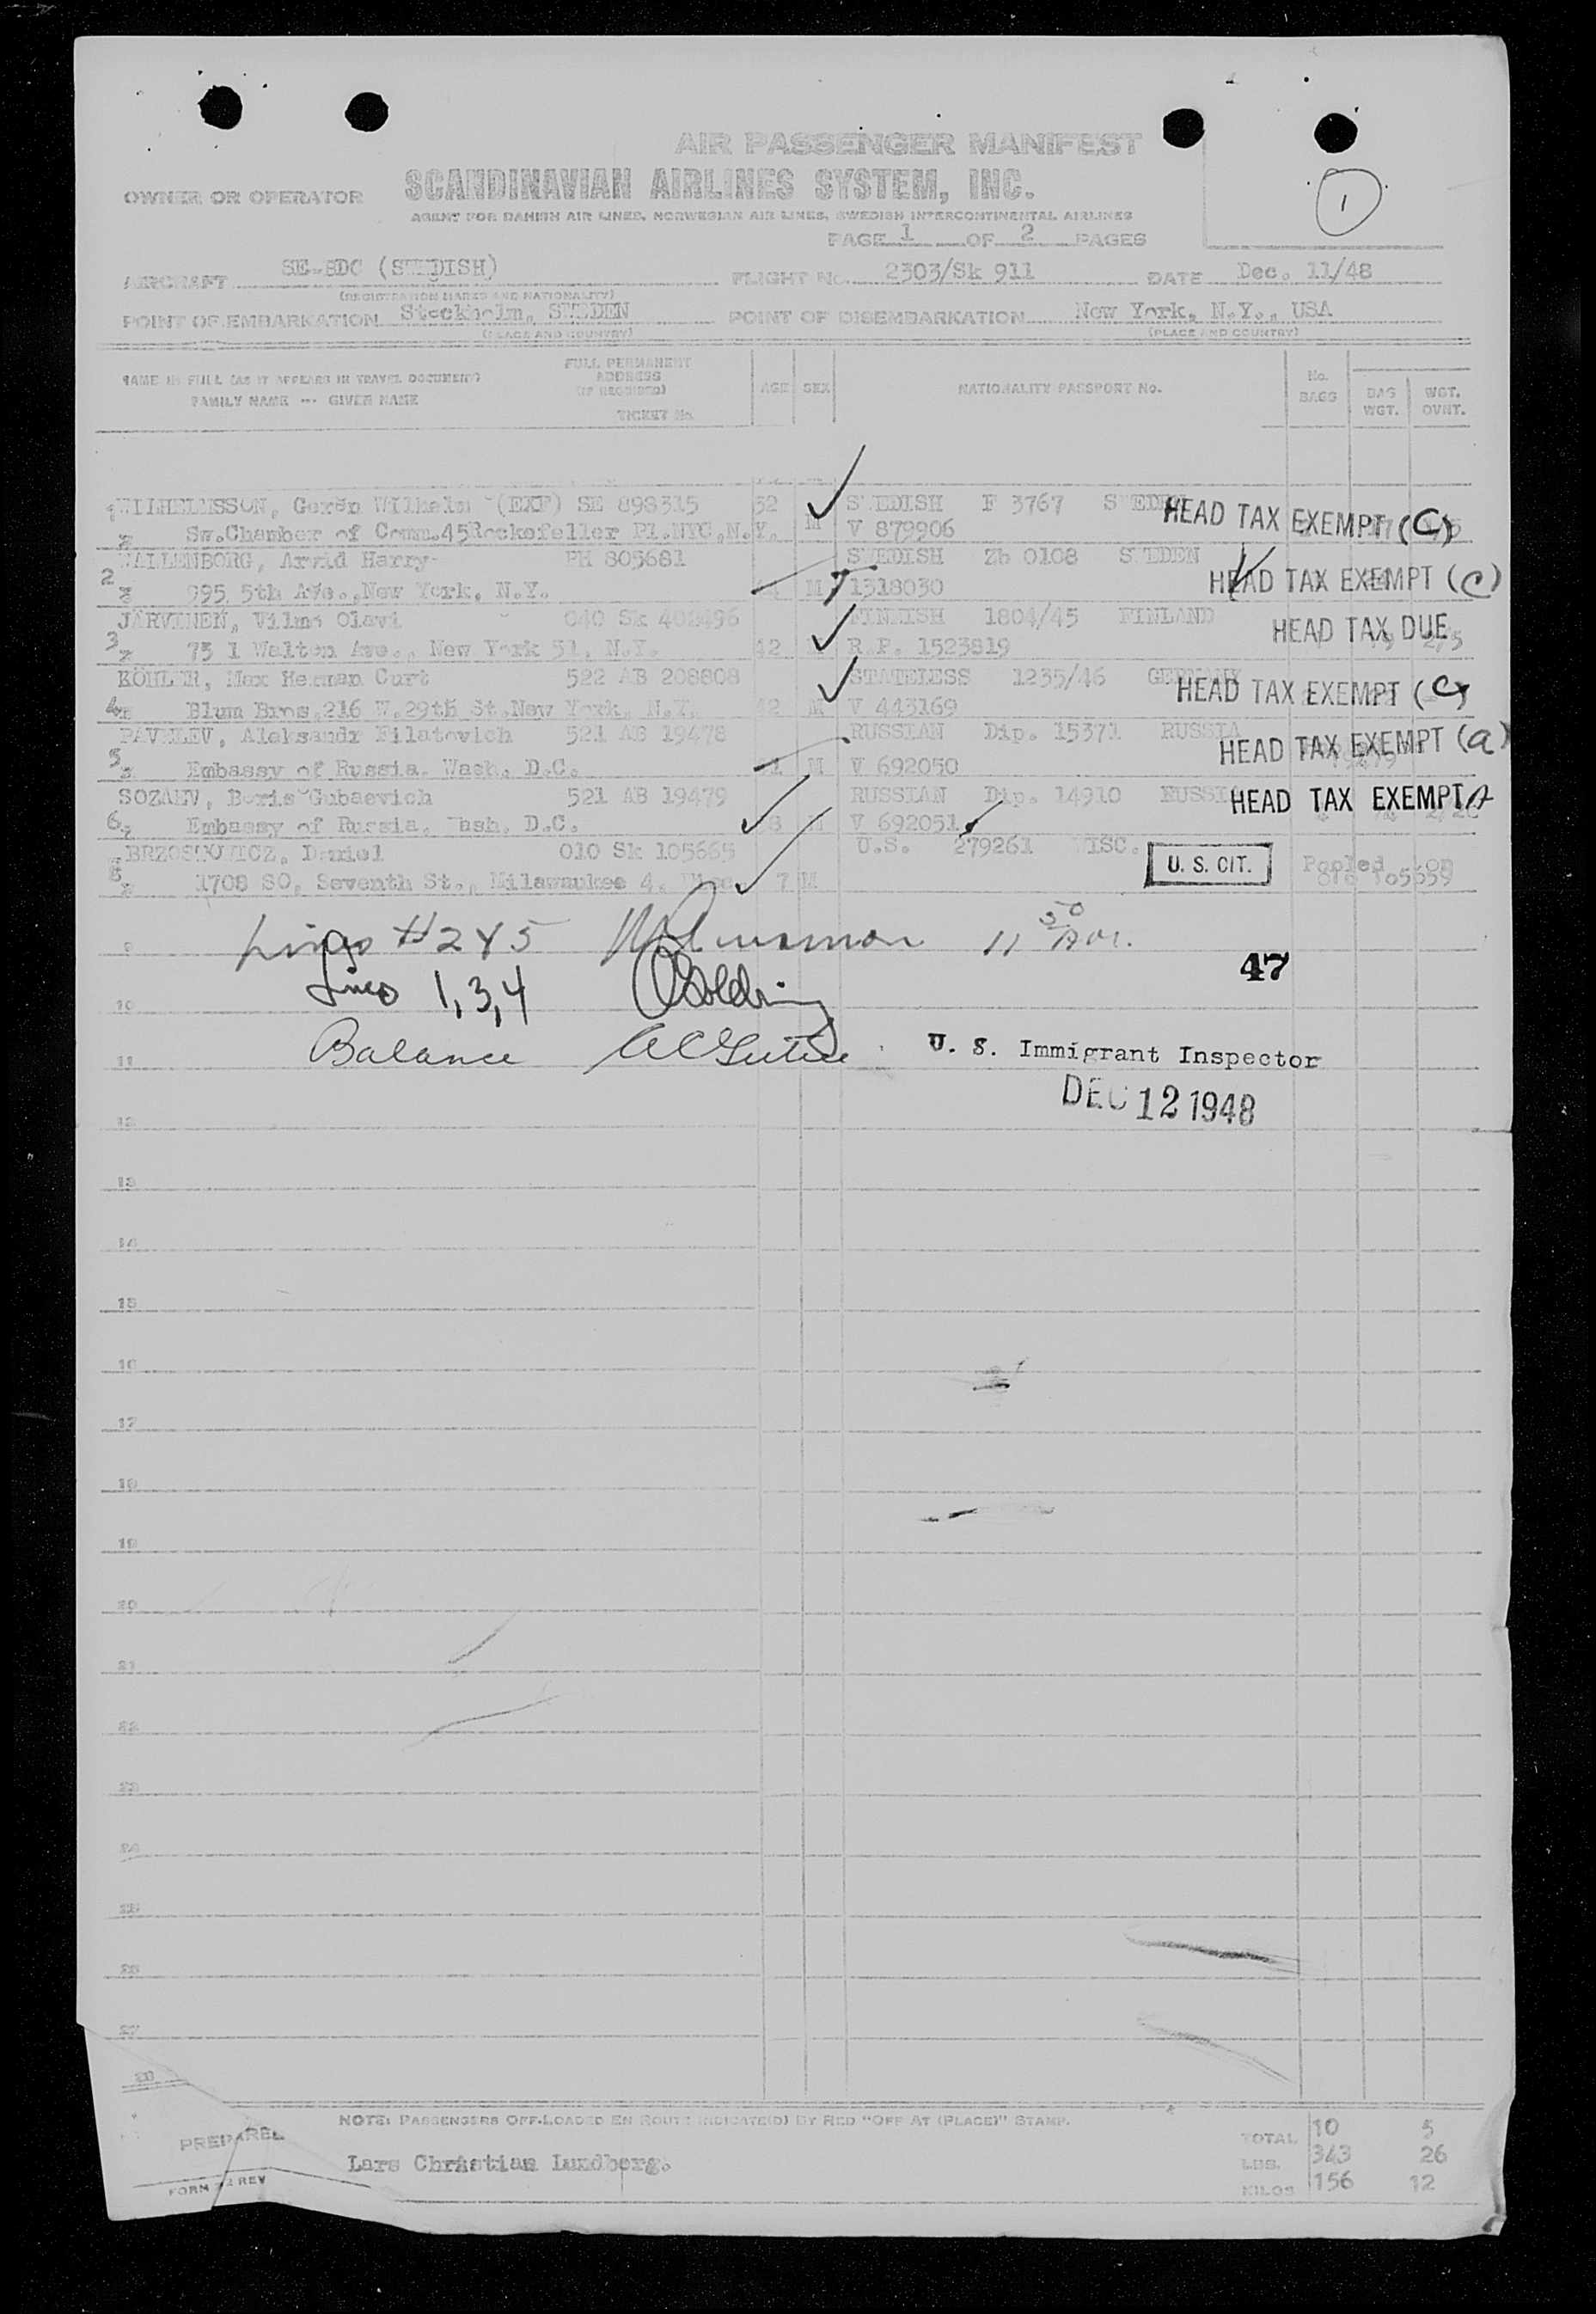 AIR PASSENGER MANIFEST
OWNER OR OPERATOR SCANDINAVIAN AIRLINES SYSTEM, INC.
AGENT FOR DANISH AIR LINES, NORWEGIAN AIR LINES, SWEDISH INTERCONTINENTAL AIRLINES
1
PAGE 1 OF 2 PAGES
AIRCRAFT SE-BDC (SWEDISH) FLIGHT No. 2303/Sk 911 DATE Dec. 11/48
(REGISTRATION MARKS AND NATIONALITY)
POINT OF EMBARKATION Stockholm, SWEDEN POINT OF DISEMBARKATION New York, N.Y., USA
(PLACE AND COUNTRY) (PLACE AND COUNTRY)
NAME IN FULL (AS IT APPEARS IN TRAVEL DOCUMENT) FAMILY NAME --- GIVEN NAME
FULL PERMANENT ADDRESS (IF REQUIRED) TICKET No.
AGE SEX NATIONALITY PASSPORT No. No. BAGS BAG WGT. WGT. OVHT.
1 WILHELMSSON, Goran Wilhelm (EXF) SE 898315 32 SWEDISH F 3767 SWEDEN HEAD TAX EXEMPT (C)
Sw.Chamber of Comm.45Rockefeller Pl.NYC.N.Y. M V 879906
WALLENBORG, Arvid Harry PH 805681 SWEDISH Zb 0108 SWEDEN
2 995 5th Ave.,New York, N.Y. M 1318030 HEAD TAX EXEMPT (C)
JARVINEN, Vilmo Olavi 040 Sk FINNISH 1804/45 FINLAND HEAD TAX DUE
3 Walton Ave., New York 51, N.Y. 42 R.P. 1523819 2,5
KÖHLER, Max Herman Curt 522 AB 208808 STATELESS 1235/46 GERMANY HEAD TAX EXEMPT (C)
4 Blum Bros.216 W.29th St.New York, N.Y. 2 M V 443169
PAVELEV, Aleksandr Filatovich 521 AB 19478 RUSSIAN Dip. 15371 RUSSIA HEAD TAX EXEMPT (a)
5 Embassy of Russia. Wash. D.C. M V 692050
SOZAEV, Boris Gubaevich 521 AB 19479 RUSSIAN Dip. 14910 RUSSIA HEAD TAX EXEMPT A
6 Embassy of Russia. Wash. D.C. 8 M V 692051
BRZOSTOWICZ, Daniel 010 Sk 105665 U.S. 279261 WISC. U. S. CIT. Pooled
8 1708 SO, Seventh St., Milawaukee 4, Wisc. 7 M
9 Lines #2 Y 5 11 50 47
10 Lines 1,3,4 Goldring
11 Balance U. S. Immigrant Inspector
DEC 12 1948
12
13
14
15
16
17
18
19
20
21
22
23
24
25
26
27
28
NOTE: PASSENGERS OFF-LOADED EN ROUTE INDICATE(D) BY RED "OFF AT (PLACE)" STAMP.
PREPARED Lars Christian Lundberg.
TOTAL 10 5
LBS. 343 26
KILOS 156 12
FORM REV